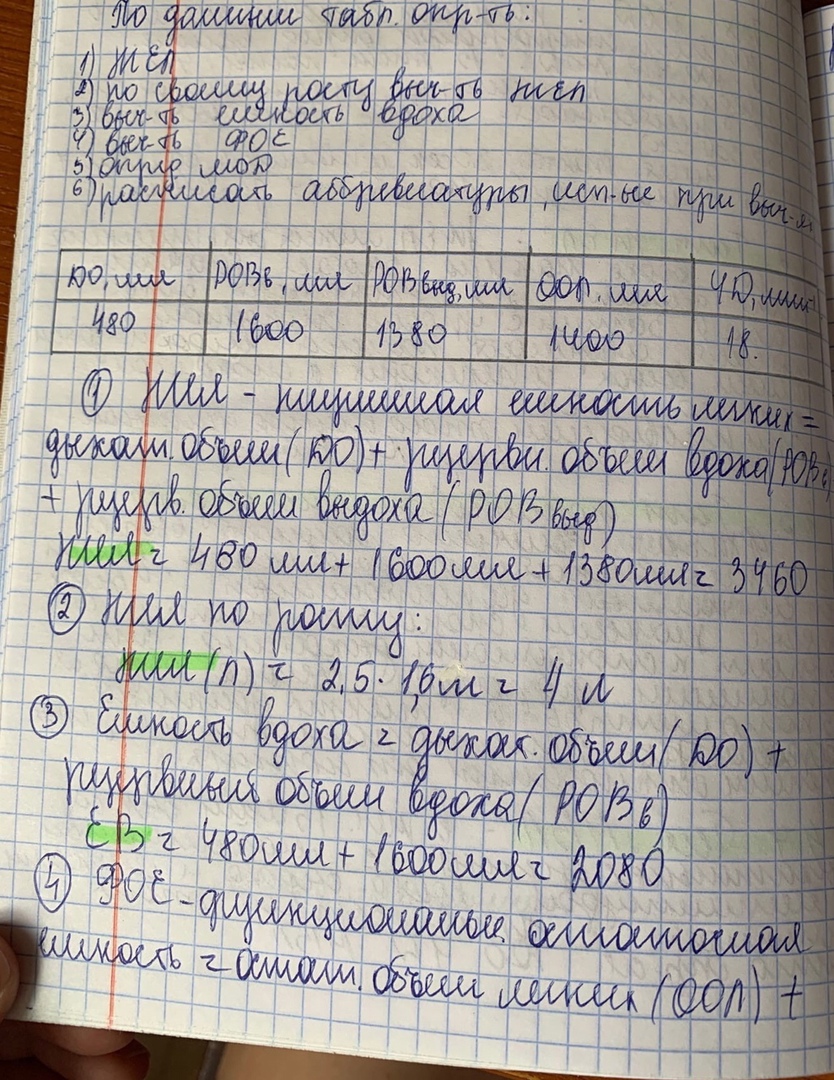 По данным табл. опр-ть:
1) ЖЕЛ
2) по своему росту выч-ть ЖЕЛ
3) выч-ть емкость вдоха
4) выч-ть ФОЕ
5) опред МОД
6) расписать аббревиатуры, исп-ые при выч-и
ДО, мл РОВв, мл РОВвыд, мл ООЛ, мл ЧД, мин
480 1600 1380 1400 18.
① ЖЕЛ - жизненная емкость легких =
дыхат. объем (ДО) + резервн. объем вдоха (РОВв)
+ резерв. объем выдоха (РОВвыд)
ЖЕЛ = 480 мл + 1600 мл + 1380 мл = 3460
② ЖЕЛ по росту:
ЖЕЛ (л) = 2,5 · 1,6 м = 4 л
③ Емкость вдоха = дыхат. объем (ДО) +
резервный объем вдоха (РОВв)
ЕВ = 480 мл + 1600 мл = 2080
④ ФОЕ - функциональн. остаточная
емкость = остат. объем легких (ООЛ) +